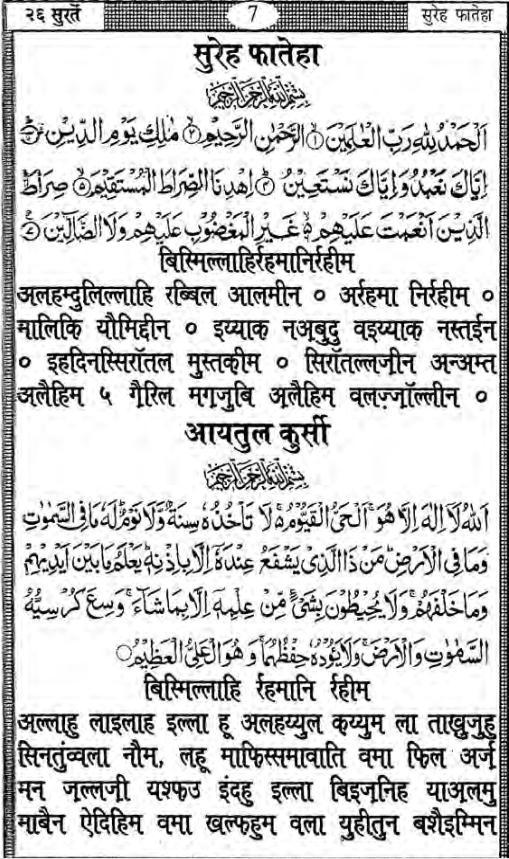 २६ सुरतें 7 सुरेह फातेहा
सुरेह फातेहा
بِسْمِ اللّٰهِ الرَّحْمٰنِ الرَّحِيْمِ
اَلْحَمْدُ لِلّٰهِ رَبِّ الْعٰلَمِيْنَ ۙ﴿۱﴾ الرَّحْمٰنِ الرَّحِيْمِ ۙ﴿۲﴾ مٰلِكِ يَوْمِ الدِّيْنِ ؕ﴿۳﴾
اِيَّاكَ نَعْبُدُ وَاِيَّاكَ نَسْتَعِيْنُ ؕ﴿۴﴾ اِهْدِنَا الصِّرَاطَ الْمُسْتَقِيْمَ ۙ﴿۵﴾ صِرَاطَ
الَّذِيْنَ اَنْعَمْتَ عَلَيْهِمْ ۙ۬ غَيْرِ الْمَغْضُوْبِ عَلَيْهِمْ وَلَا الضَّآلِّيْنَ
बिस्मिल्लाहिर्रहमानिर्रहीम
अलहम्दुलिल्लाहि रब्बिल आलमीन ० अर्रहमा निर्रहीम ०
मालिकि यौमिद्दीन ० इय्याक़ नअ़बुदु वइय्याक़ नस्तईन
० इहदिनस्सिरॉतल मुस्तक़ीम ० सिरॉतल्लज़ीन अन्अम्त
अलैहिम ५ ग़ैरिल मग़ज़ुबि अ़लैहिम वलज़्ज़ॉल्लीन ०
आयतुल कुर्सी
بِسْمِ اللّٰهِ الرَّحْمٰنِ الرَّحِيْمِ
اَللّٰهُ لَاۤ اِلٰهَ اِلَّا هُوَ ۚ اَلْحَىُّ الْقَيُّوْمُ ۚ لَا تَاْخُذُهٗ سِنَةٌ وَّلَا نَوْمٌ ؕ لَهٗ مَا فِى السَّمٰوٰتِ
وَمَا فِى الْاَرْضِ ؕ مَنْ ذَا الَّذِىْ يَشْفَعُ عِنْدَهٗۤ اِلَّا بِاِذْنِهٖ ؕ يَعْلَمُ مَا بَيْنَ اَيْدِيْهِمْ
وَمَا خَلْفَهُمْ ۚ وَلَا يُحِيْطُوْنَ بِشَىْءٍ مِّنْ عِلْمِهٖۤ اِلَّا بِمَا شَآءَ ۚ وَسِعَ كُرْسِيُّهُ
السَّمٰوٰتِ وَالْاَرْضَ ۚ وَلَا يَـُٔوْدُهٗ حِفْظُهُمَا ۚ وَهُوَ الْعَلِىُّ الْعَظِيْمُ ○
बिस्मिल्लाहि र्रहमानि र्रहीम
अल्लाहु लाइलाह इल्ला हू अलहय्युल क़य्युम ला ताख़ुज़ुहु
सिनतुंव्वला नौम, लहू माफिस्समावाति वमा फिल अर्ज़
मन ज़ल्लज़ी यश्फउ इंदहु इल्ला बिइज़निह याअ़लमु
माबैन ऐदिहिम वमा खल्फहुम वला युहीतुन बशैइम्मिन